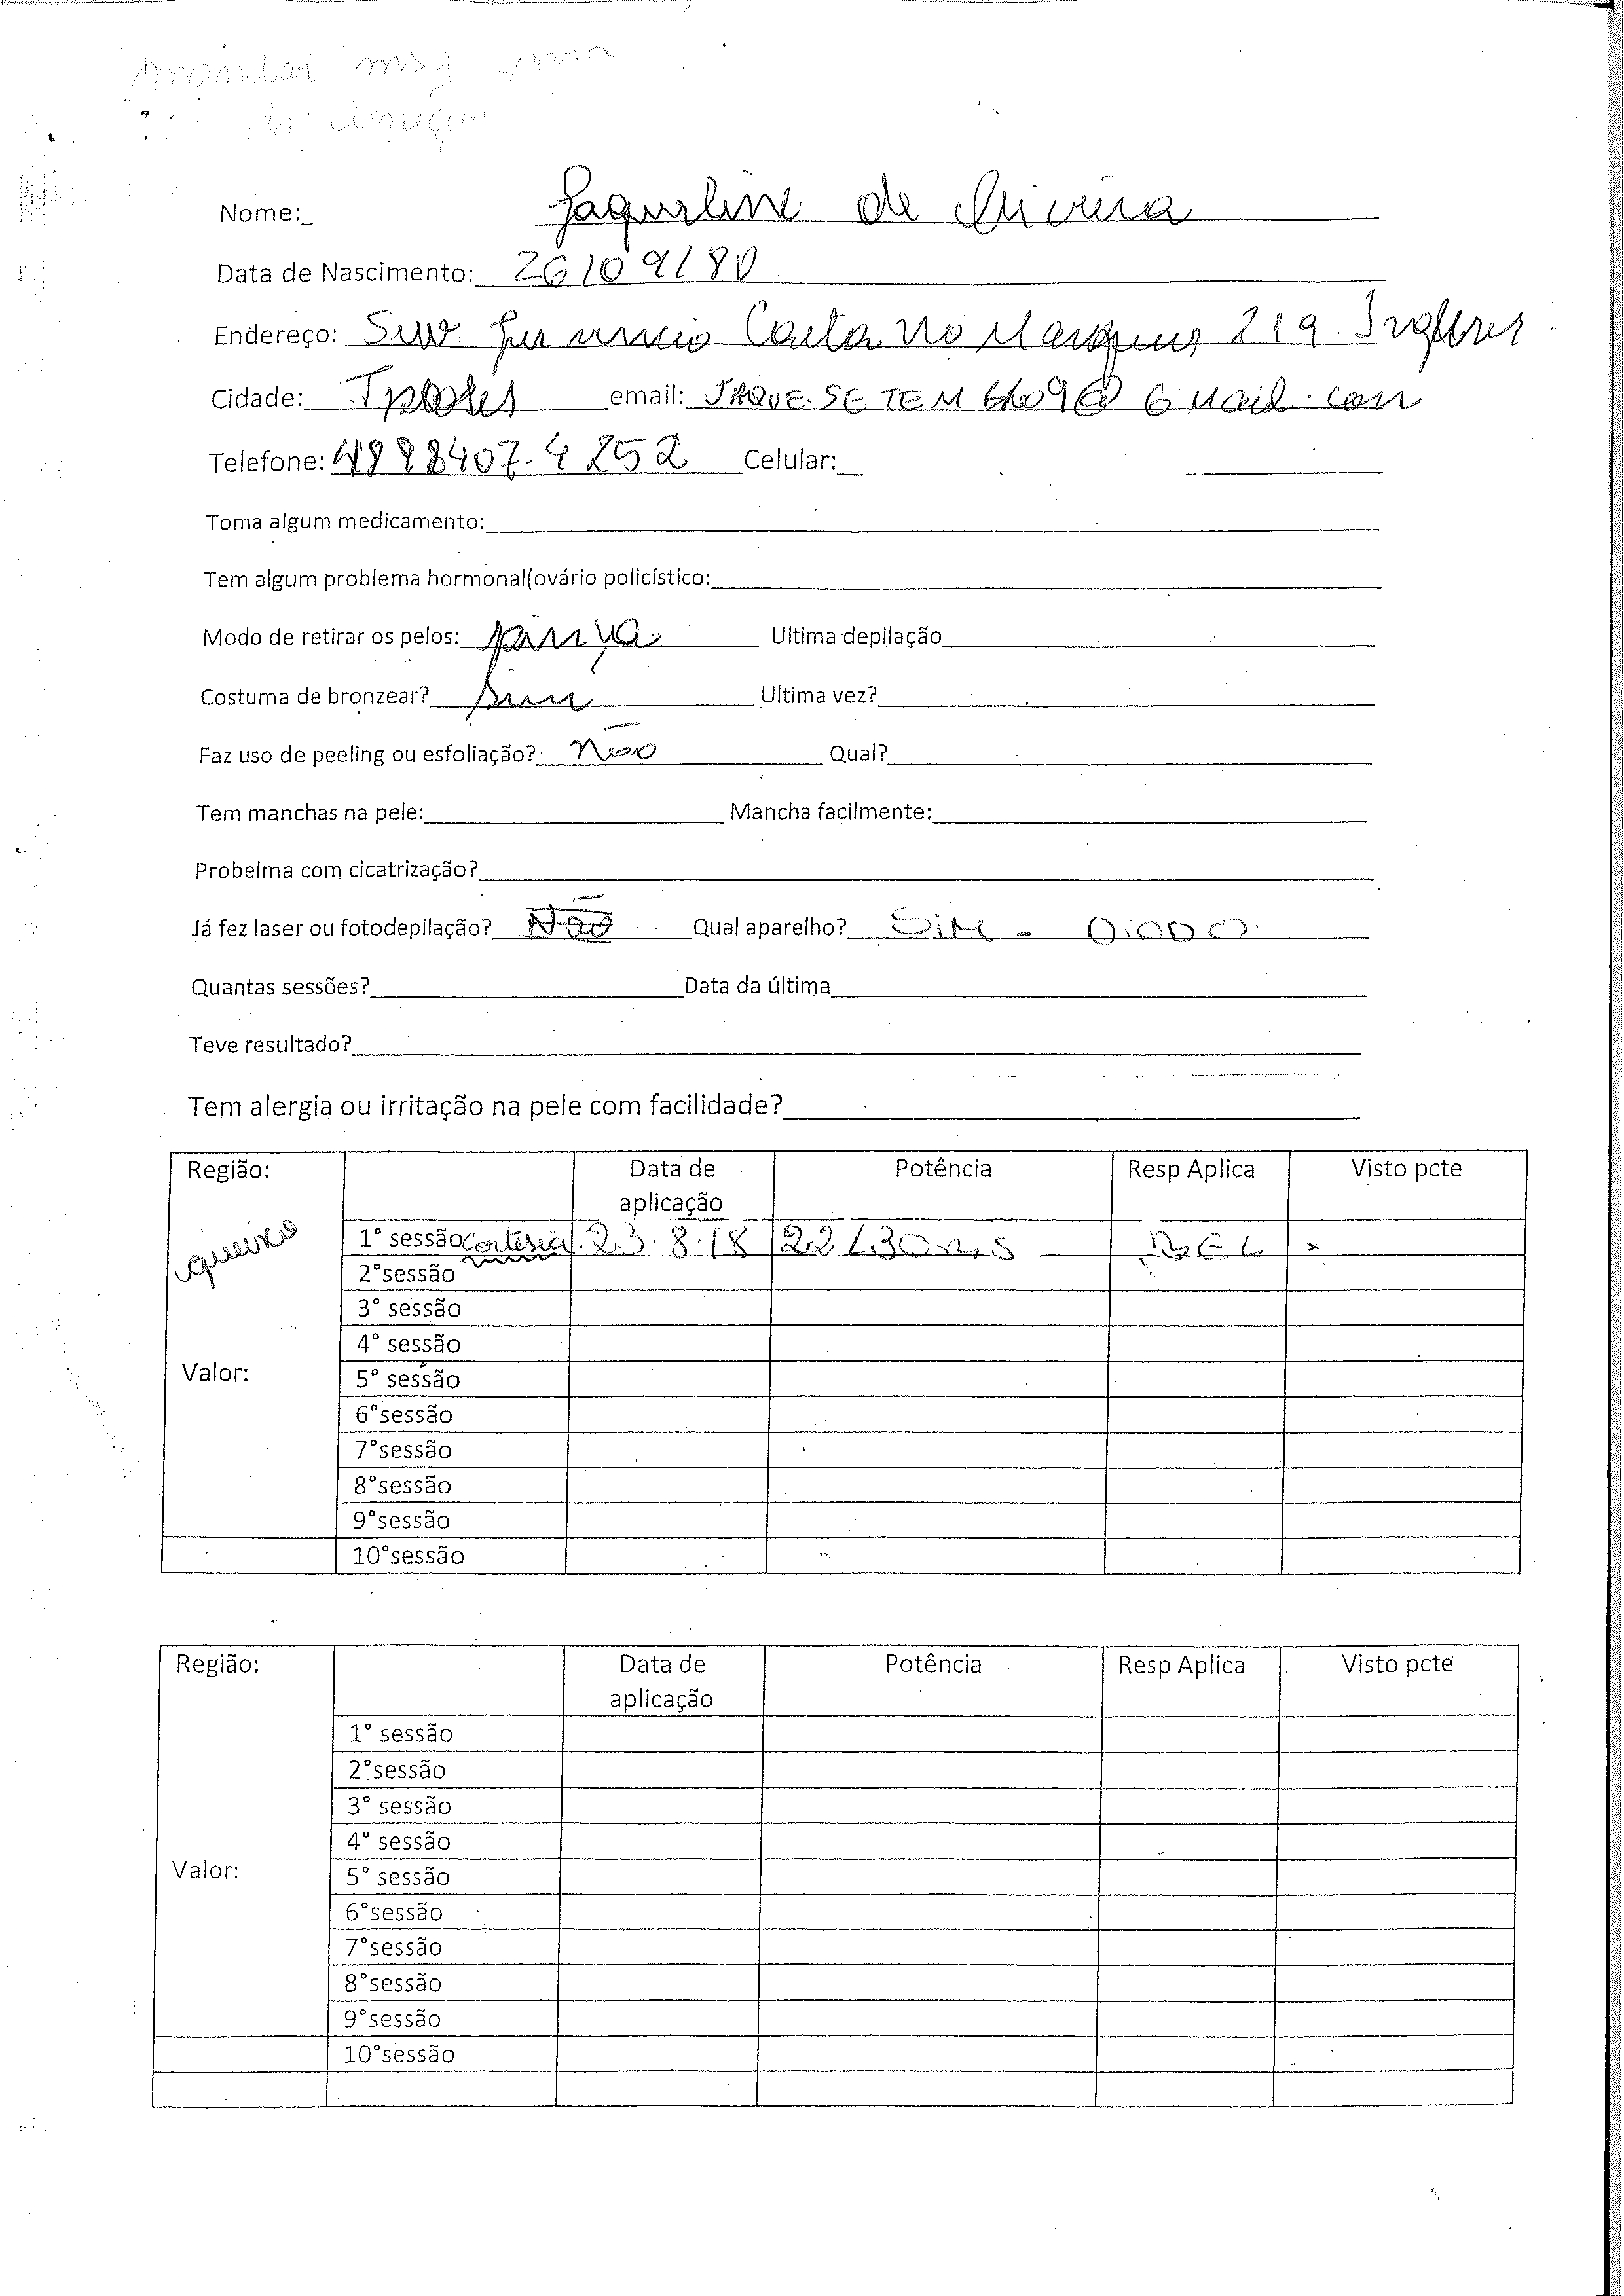 mandar msg para
ver começou
Nome: Jaqueline de Oliveira
Data de Nascimento: 26/09/80
Endereço: Serv. Caetano Marques 219. Ingleses
Cidade: Fpolis email: JAQUE.SETEMBRO09@GMail.com
Telefone: 48 98407-4252 Celular:
Toma algum medicamento:
Tem algum problema hormonal(ovário policístico:
Modo de retirar os pelos: pinça Ultima depilação
Costuma de bronzear? sim Ultima vez?
Faz uso de peeling ou esfoliação? Não Qual?
Tem manchas na pele: Mancha facilmente:
Probelma com cicatrização?
Já fez laser ou fotodepilação? Não Qual aparelho? SiM - DiODO
Quantas sessões? Data da última
Teve resultado?
Tem alergia ou irritação na pele com facilidade?
Região: Data de aplicação Potência Resp Aplica Visto pcte
queixo
1° sessão cortesia 23.8.18 22/30ms BEL
2°sessão
3° sessão
4° sessão
Valor:
5° sessão
6°sessão
7°sessão
8°sessão
9°sessão
10°sessão
Região: Data de aplicação Potência Resp Aplica Visto pcte
1° sessão
2°sessão
3° sessão
4° sessão
Valor:
5° sessão
6°sessão
7°sessão
8°sessão
9°sessão
10°sessão